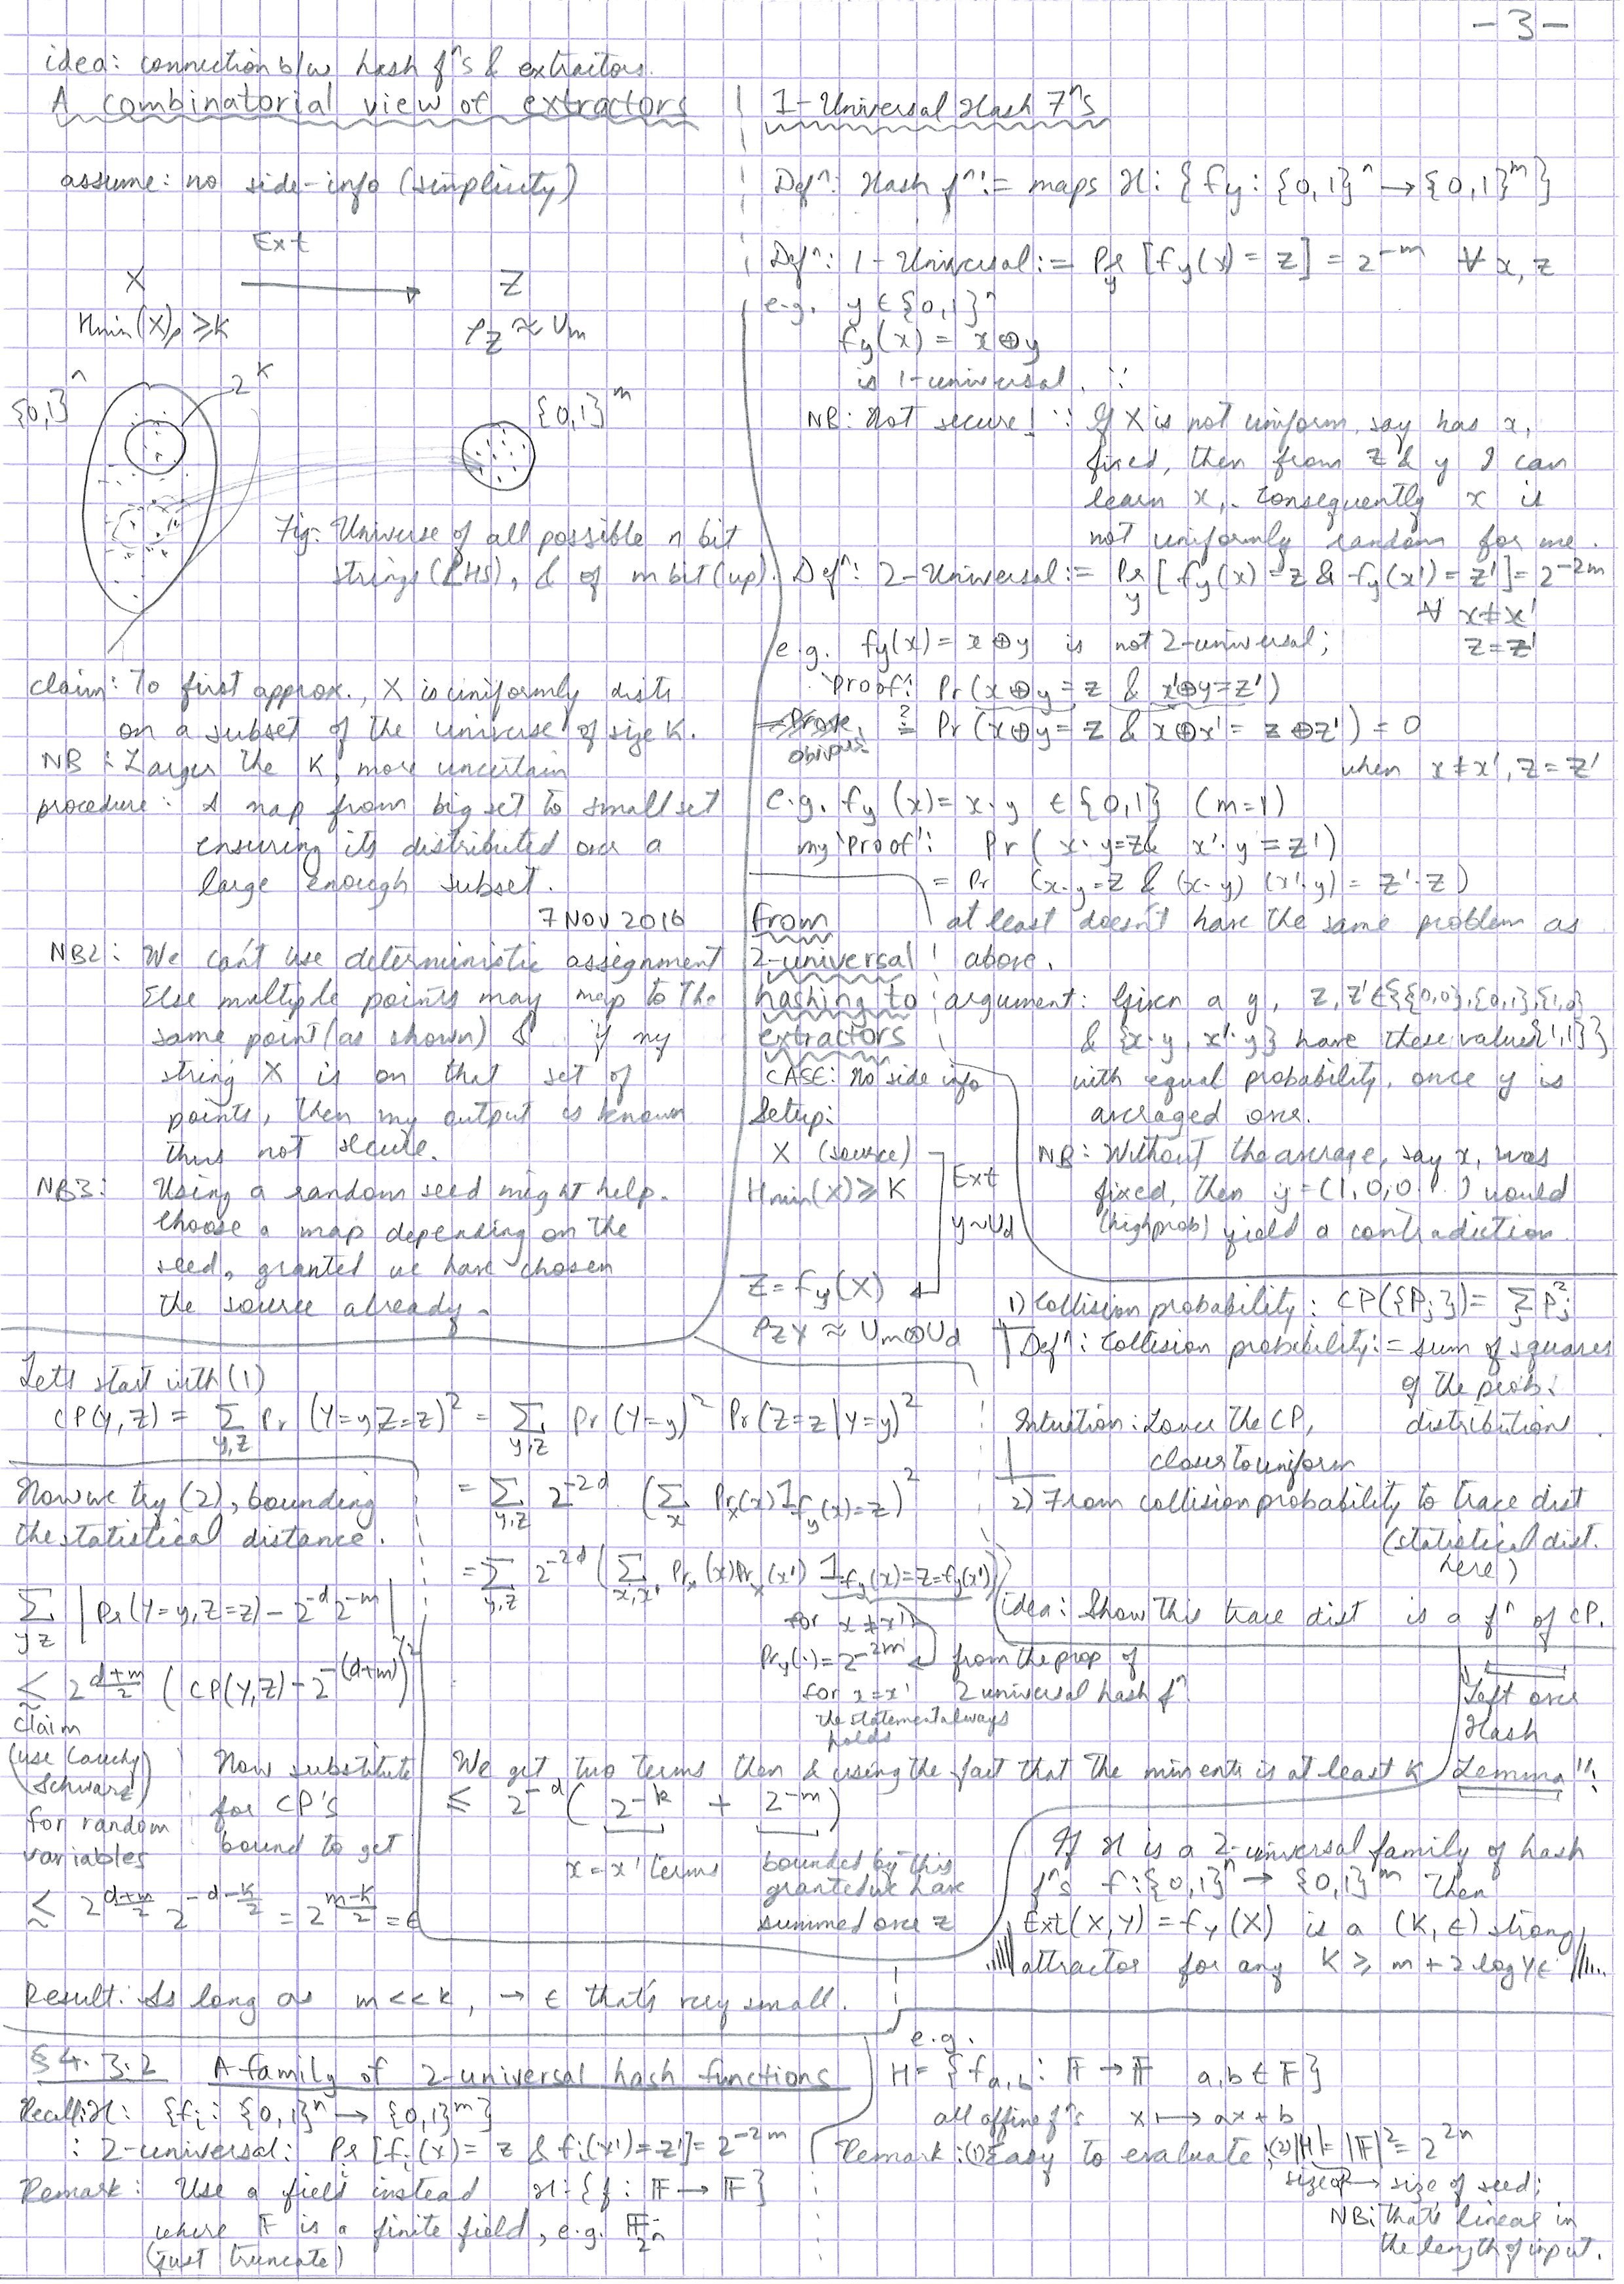 -3-
idea: connection b/w hash fⁿs & extractors.
A combinatorial view of extractors
assume: no side-info (simplicity)
Ext
X → Z
Hmin(X)ρ ≥ K
ρ_Z ≈ U_m
{0,1}ⁿ
2^K
{0,1}^m
Fig: Universe of all possible n bit
strings (LHS), & of m bit (up).
claim: To first approx., X is uniformly distr
on a subset of the universe of size K.
NB: Larger the K, more uncertain
procedure: A map from big set to small set
ensuring its distributed over a
large enough subset.
7 NOV 2016
NB2: We can't use deterministic assignment
Else multiple points may map to the
same point (as shown) & if my
string X is on that set of
points, then my output is known
thus not secure.
NB3: Using a random seed might help.
Choose a map depending on the
seed, granted we have chosen
the source already.
1-Universal Hash Fⁿs
Defⁿ: Hash fⁿ := maps H: {f_y : {0,1}ⁿ → {0,1}^m}
Defⁿ: 1-Universal := Pr_y [f_y(x) = z] = 2^-m ∀ x, z
e.g. y ∈ {0,1}ⁿ
f_y(x) = x ⊕ y
is 1-universal. ∵
NB: Not secure! ∵ If X is not uniform, say has x,
fixed, then from z & y I can
learn x,. Consequently x is
not uniformly random for me.
Defⁿ: 2-Universal := Pr_y [f_y(x) = z & f_y(x') = z'] = 2^-2m
∀ x ≠ x'
z = z'
e.g. f_y(x) = x ⊕ y is not 2-universal;
'Proof': Pr(x ⊕ y = z & x' ⊕ y = z')
obvious ?= Pr (x ⊕ y = z & x ⊕ x' = z ⊕ z') = 0
when x ≠ x', z = z'
e.g. f_y(x) = x·y ∈ {0,1} (m=1)
my 'Proof': Pr (x·y = z & x'·y = z')
= Pr (x·y = z & (x·y) (x'·y) = z'·z)
at least doesn't have the same problem as
above.
argument: Given a y, z, z' ∈ {{0,0},{0,1},{1,0}
{1,1}}
& {x·y, x'·y} have these values
with equal probability, once y is
averaged over.
NB: Without the average, say x, was
fixed, then y = (1,0,0...) would
(high prob) yield a contradiction.
From
2-universal
hashing to
extractors
CASE: No side info
Setup:
X (source)
Hmin(X) ≥ K
Ext
y ~ U_d
Z = f_y(X)
ρ_ZY ≈ U_m ⊗ U_d
1) Collision probability: CP({P_j}) = Σ_j P_j²
Defⁿ: Collision probability := sum of squares
of the prob.
distributions.
Intuition: Lower the CP,
closer to uniform
2) From collision probability to trace dist
(statistical dist.
here)
idea: Show this trace dist is a fⁿ of CP.
Lets start with (1)
CP(Y,Z) = Σ_{y,z} Pr (Y=y, Z=z)² = Σ_{y,z} Pr (Y=y)² Pr(Z=z|Y=y)²
= Σ_{y,z} 2^-2d (Σ_x Pr_x(x) 1_{f_y(x)=z})²
= Σ_{y,z} 2^-2d (Σ_{x,x'} Pr_x(x) Pr_x(x') 1_{f_y(x)=z=f_y(x')})
for x ≠ x'
Pr_y(·) = 2^-2m from the prop of
2 universal hash fⁿ
for x = x'
the statement always
holds
We get two terms then & using the fact that the min ent is at least K
≤ 2^-d (2^-k + 2^-m)
x = x' terms
bounded by this
granted we have
summed over z
Now we try (2), bounding
the statistical distance.
Σ_{yz} |Pr(Y=y, Z=z) - 2^-d 2^-m|
≤ 2^{(d+m)/2} (CP(Y,Z) - 2^-(d+m))^{1/2}
claim
(use Cauchy
Schwarz)
for random
variables
Now substitute
for CP's
bound to get
≲ 2^{(d+m)/2} 2^{(-d-k)/2} = 2^{(m-k)/2} = ε
Result: As long as m << k, → ε that's very small.
Left over
Hash
Lemma!!
If H is a 2-universal family of hash
fⁿs f: {0,1}ⁿ → {0,1}^m Then
Ext(X,Y) = f_Y(X) is a (K, ε) strong
attractor for any K ≥ m + 2 log 1/ε
§4.3.2 A family of 2-universal hash functions
Recall: H: {f_i : {0,1}ⁿ → {0,1}^m}
: 2-universal: Pr_i [f_i(x) = z & f_i(x') = z'] = 2^-2m
Remark: Use a field instead H: {f: F → F}
where F is a finite field, e.g. F_2ⁿ
(just truncate)
e.g.
H = {f_a,b : F → F a,b ∈ F}
all affine fⁿs x ↦ ax + b
Remark: (1) Easy to evaluate; (2) |H| = |F|² = 2^2n
size of → size of seed;
NB: that's linear in
the length of input.